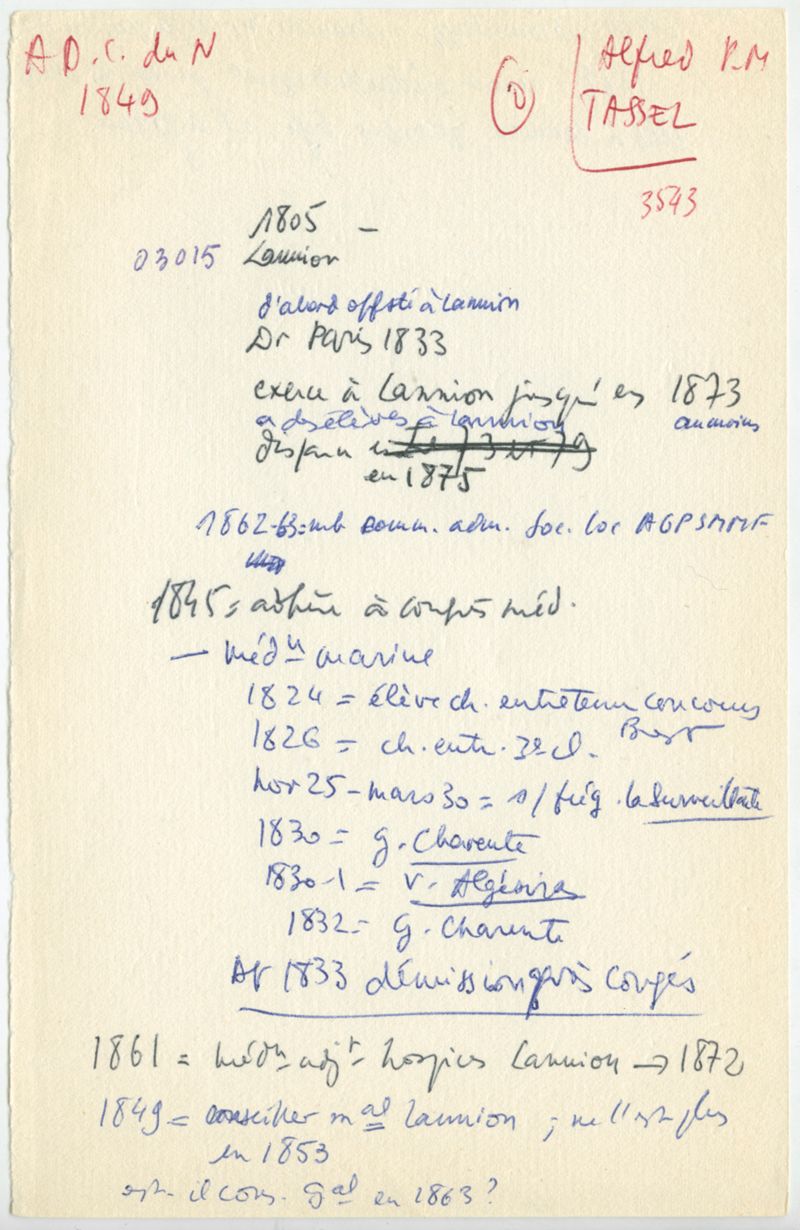 A D. C. du N
1849
D
Alfred P.M
TASSEL
3543
1805 –
03015 Lannion
d'abord off sté à Lannion
Dr Paris 1833
exerce à Lannion jusqu'en 1873
a des élèves à Lannion au moins
disparu
en 1875
1862-63 = mb comm. adm. Soc. loc AGPSMMF
1845 = adhère à congrès méd.
— Médn marine
1824 = élève ch. entretenu concours
Brest
1826 = ch. entr. 3e cl.
Nov 25 – mars 30 = s/ frég. la Surveillante
1830 = g. Charente
1830-1 = v. Algésiras
1832 = g. Charente
Av 1833 démission après congés
1861 = médn adjt hospices Lannion → 1872
1849 = conseiller mal Lannion ; ne l'est plus
en 1853
est-il cons. gal en 1863 ?